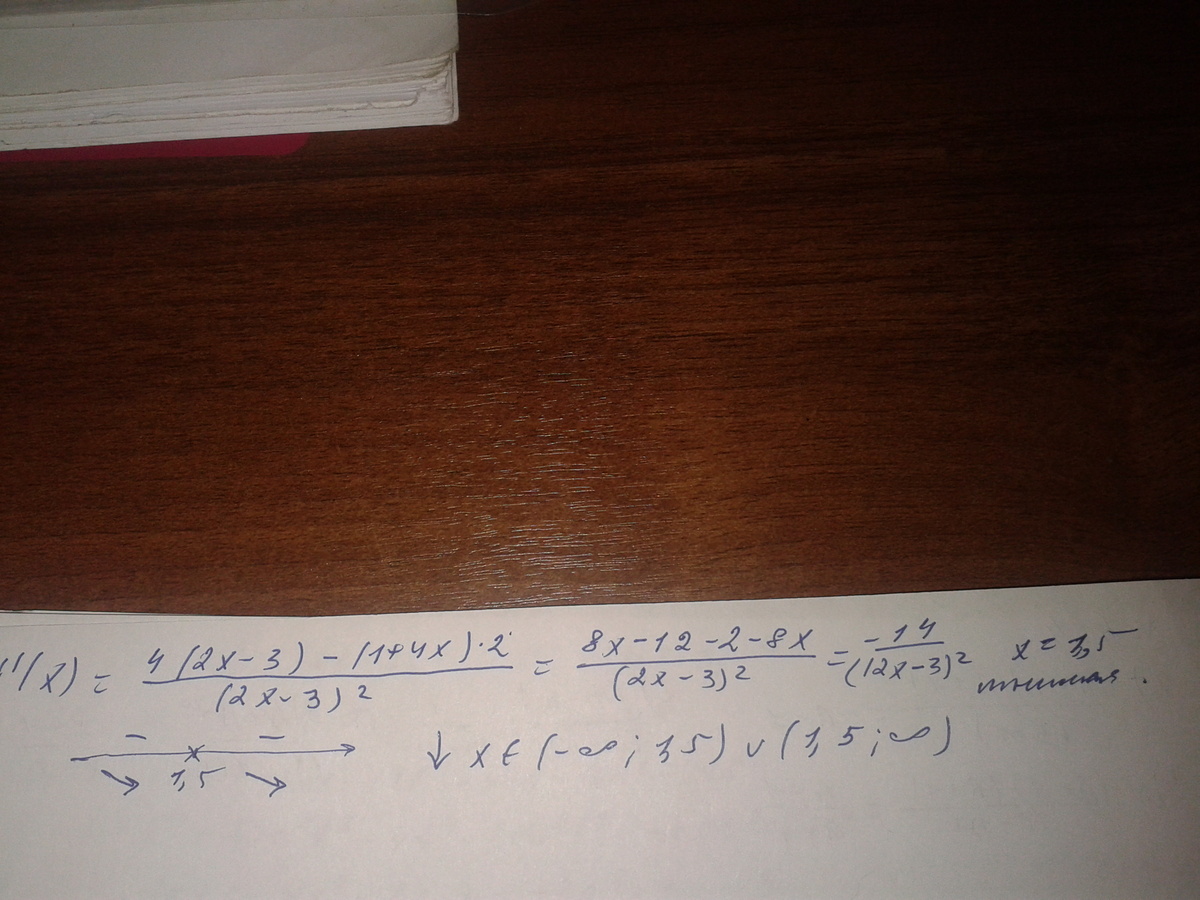 f'(x) = (4(2x-3) - (1+4x)·2)/((2x-3)²) = (8x-12-2-8x)/((2x-3)²) = (-14)/((2x-3)²) x=1,5
- -
1,5
↓ x ∈ (-∞; 1,5) ∪ (1,5; ∞)